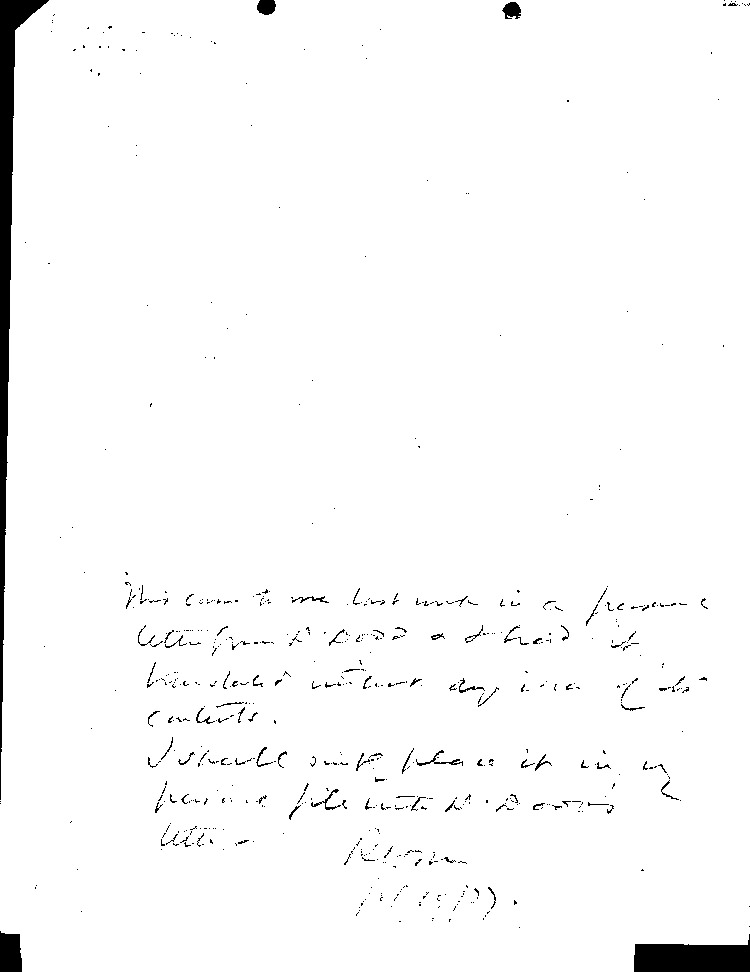 This came to me last week in a personal
letter from Dr Dodd & I had it
translated without any idea of its
contents.
I shall simply place it in my
personal file with Dr. Dodd's
letter